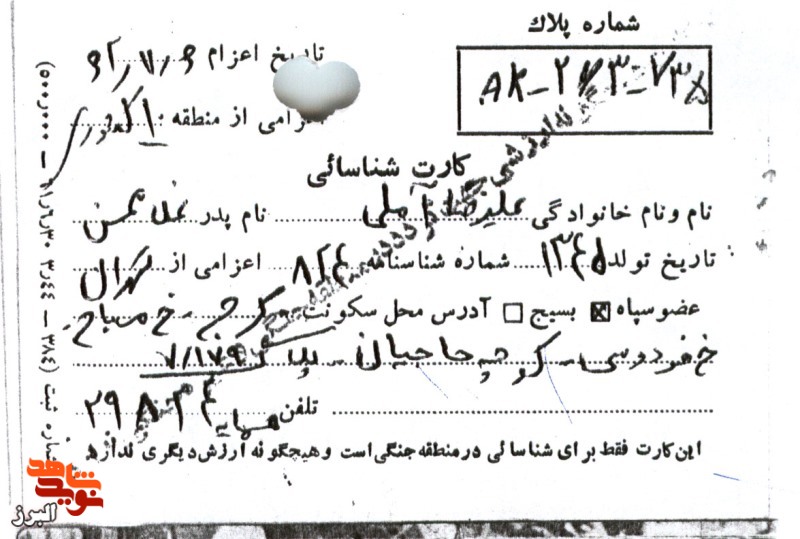 شماره پلاك
AK_ ۲۷۳_۷۳۸
تاریخ اعزام ۶۲٫۷٫۶
اعزامی از منطقه
کارت شناسائی
نام و نام خانوادگی علیرضا آملی نام پدر غلامحسن
تاریخ تولد ۱۳۴۵ شماره شناسنامه ۸۲۴ اعزامی از تهران
عضو سپاه ☒ بسیج ☐ آدرس محل سکونت کرج - خ مصباح
خ فردوسی - کوچه حاجیان - پلاک ۷/۱۷۹
تلفن همسایه ۲۹۸۲۴
این کارت فقط برای شناسائی در منطقه جنگی است و هیچگونه ارزش دیگری ندارد
شماره ثبت (۳۸۴ – ۳٫۴۴ – ۶۱٫۶٫۳۰ – ۵۰۰٫۰۰۰)
نوید شاهد
البرز